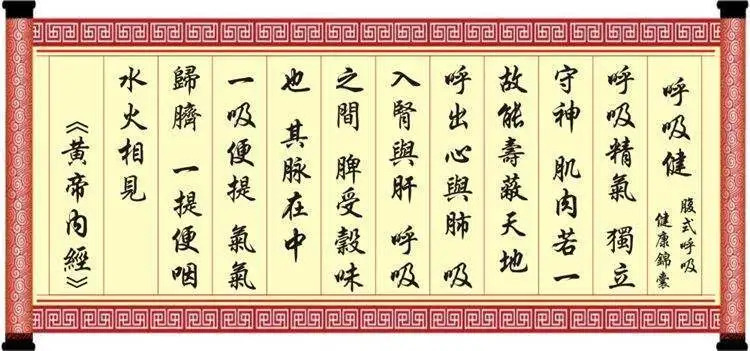 呼吸健
腹式呼吸
健康錦囊
呼吸精氣 獨立
守神 肌肉若一
故能壽蔽天地
呼出心與肺 吸
入腎與肝 呼吸
之間 脾受穀味
也 其脉在中
一吸便提 氣氣
歸臍 一提便咽
水火相見
《黃帝内經》